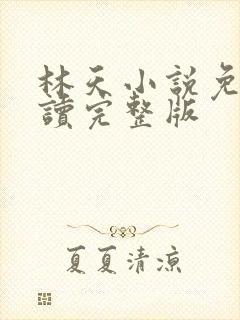 林天小說免
讀完整版
夏夏清涼